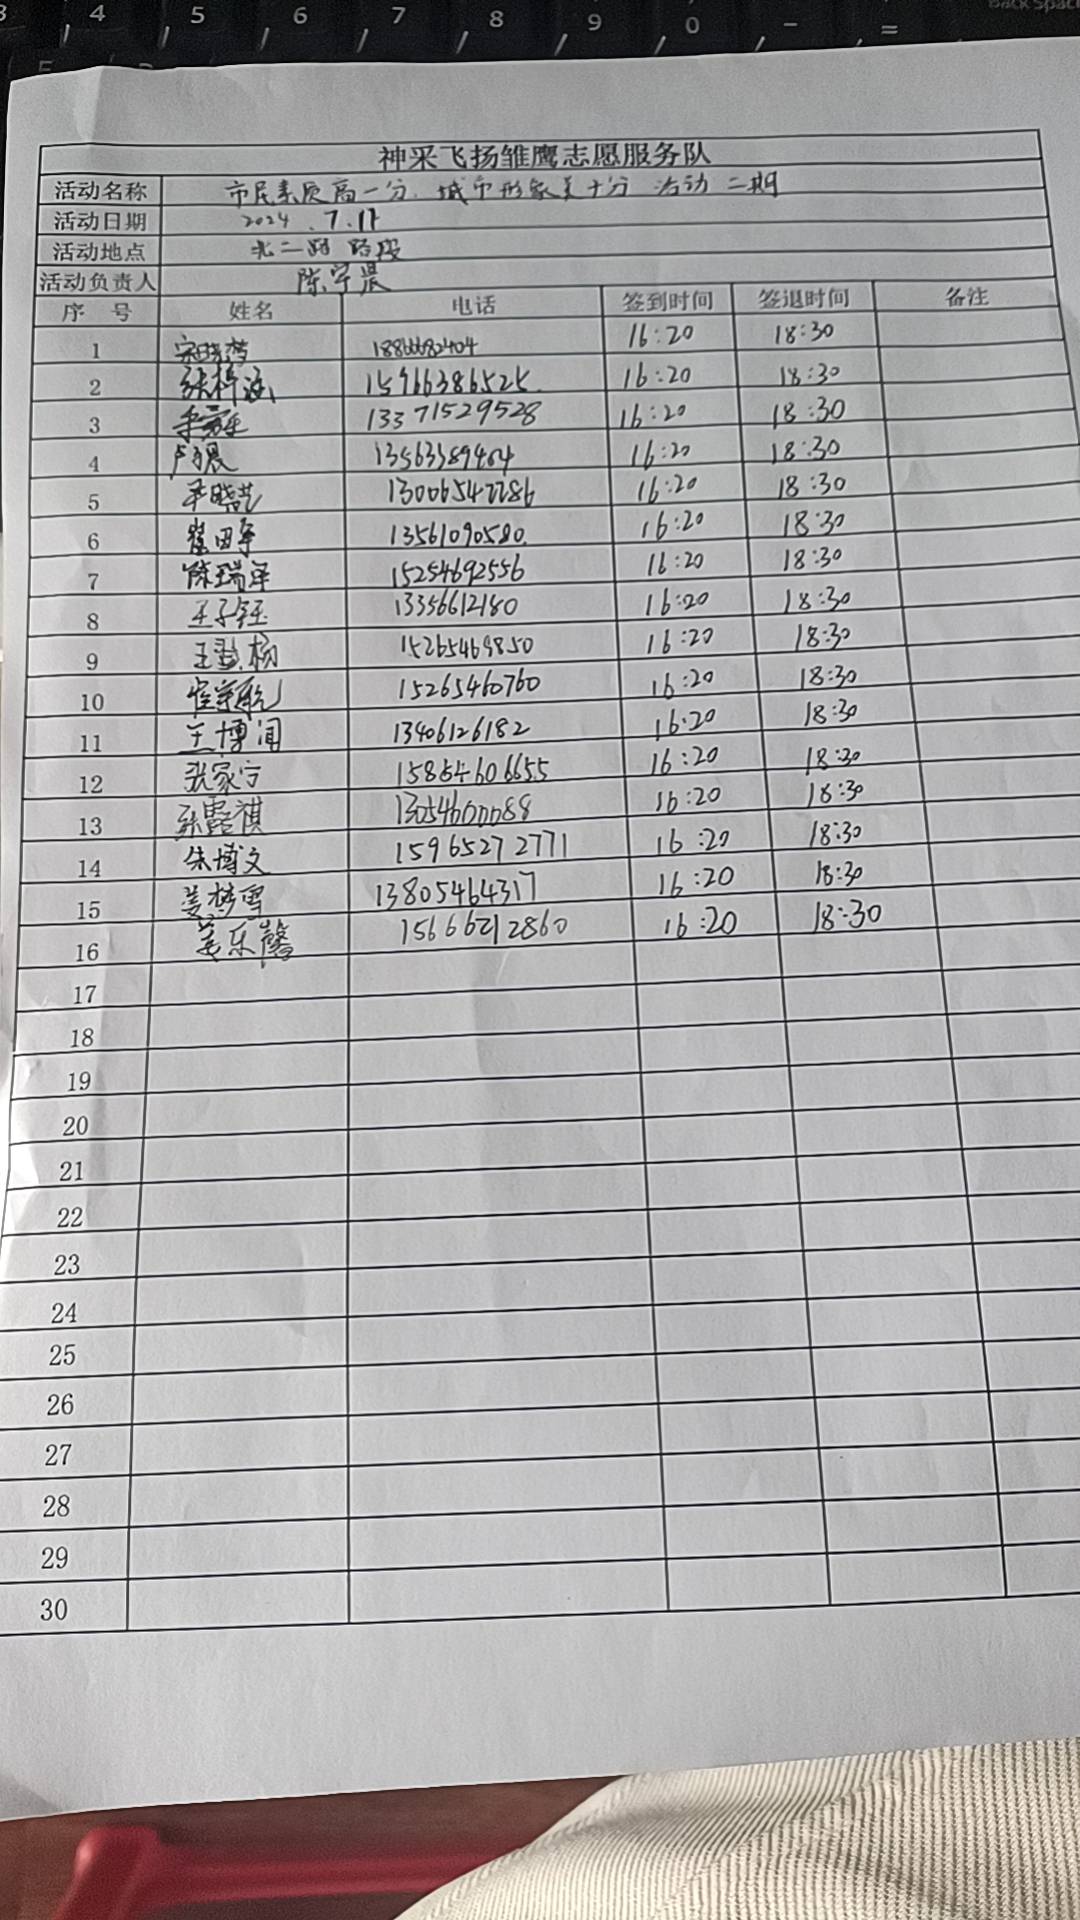 3 4 5 6 7 8 9 0 - =
Back Space
神采飞扬雏鹰志愿服务队
活动名称 市民素质高一分.城市形象美十分 活动 二期
活动日期 2024.7.11
活动地点 北二路 路段
活动负责人 陈宇晨
序 号 姓名 电话 签到时间 签退时间 备注
1 宋晓梦 18866682404 16:20 18:30
2 张梓涵 15966386525 16:20 18:30
3 13371529528 16:20 18:30
4 16:20 18:30
5 13006542286 16:20 18:30
6 13561090580 16:20 18:30
7 陈瑞泽 15254692556 16:20 18:30
8 王子钰 13356612180 16:20 18:30
9 15265469850 16:20 18:30
10 崔宇航 15265460760 16:20 18:30
11 王博闻 13406126182 16:20 18:30
12 张家宁 15854606655 16:20 18:30
13 16:20 18:30
14 朱博文 15965272771 16:20 18:30
15 姜梦雪 13805464317 16:20 18:30
16 姜乐馨 15666212860 16:20 18:30
17
18
19
20
21
22
23
24
25
26
27
28
29
30